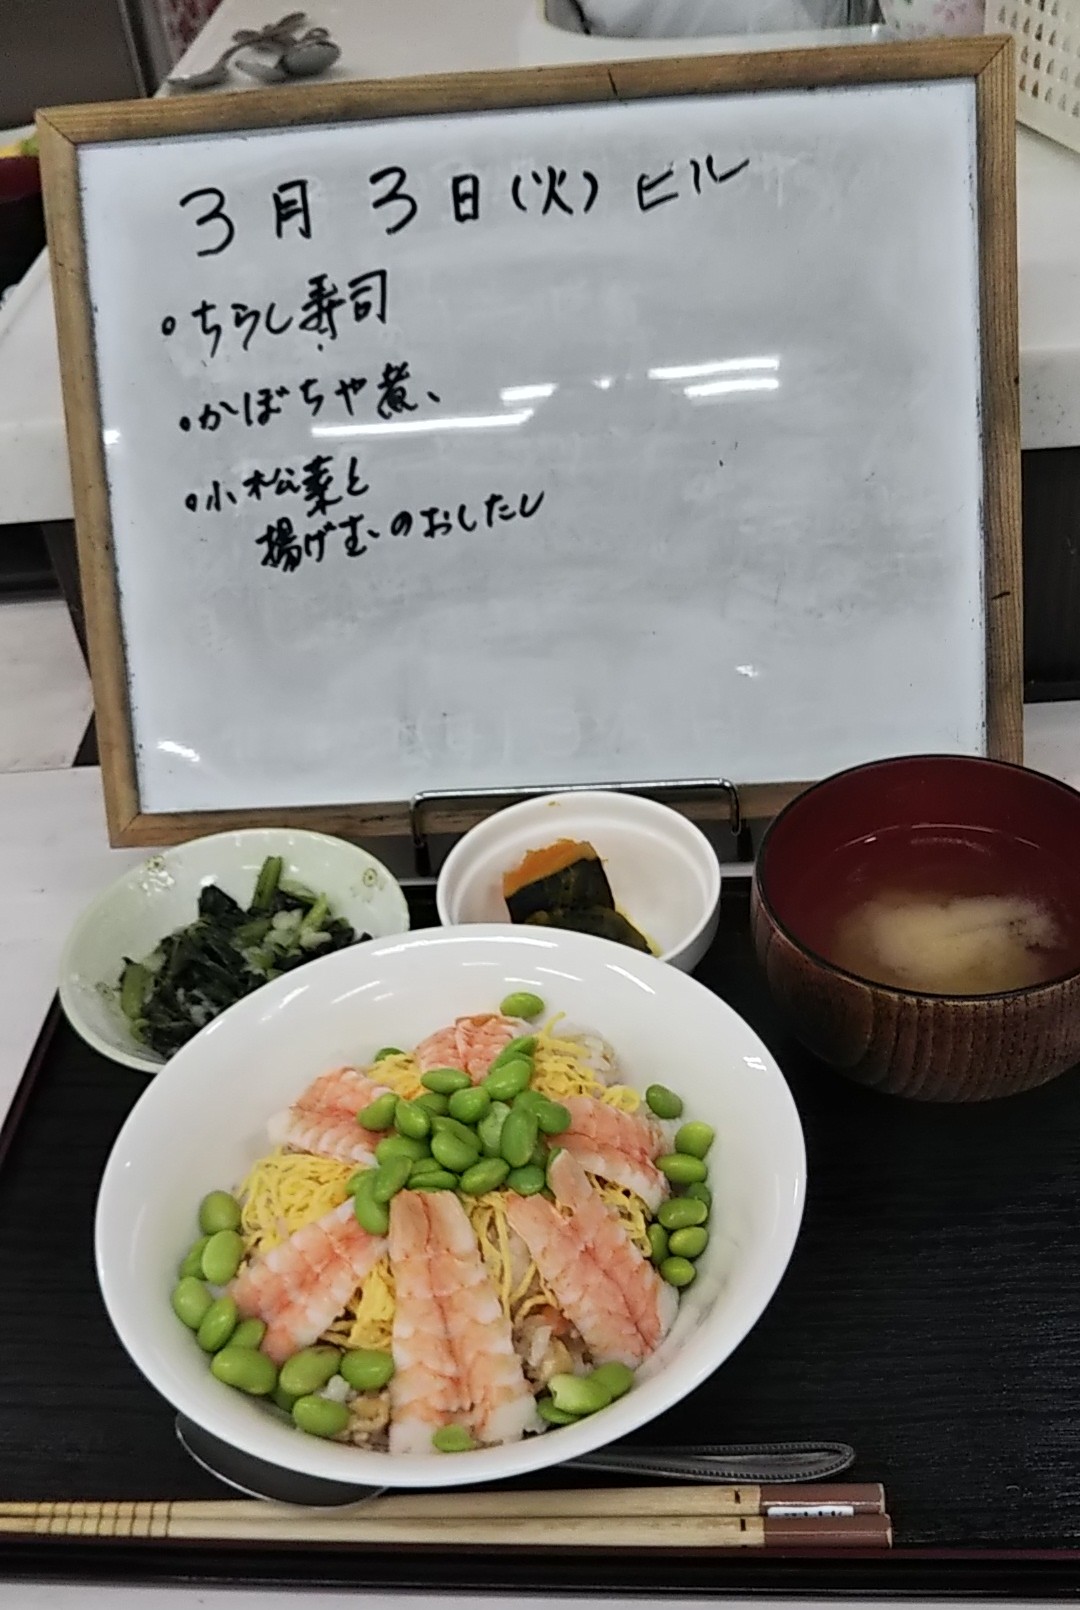 3月3日(火)ヒル
・ちらし寿司
・かぼちゃ煮、
・小松菜と
揚げ玉のおしたし